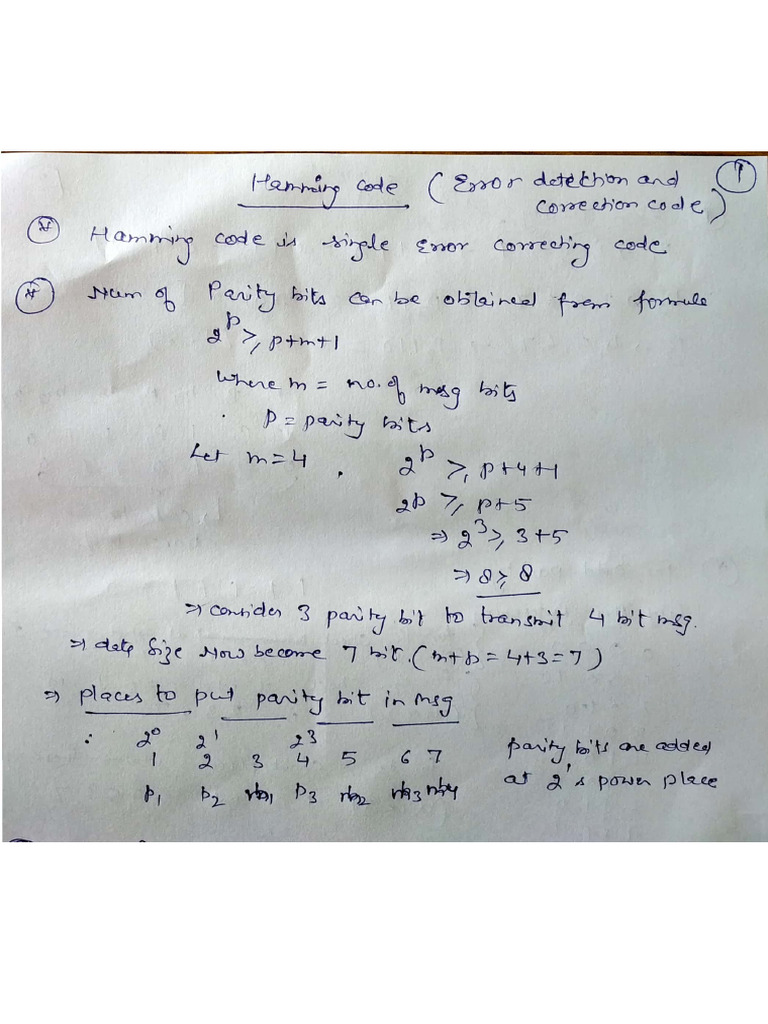 1
Hamming code (Error detection and
correction code)
* Hamming code is single error correcting code
* Num of Parity bits can be obtained from formule
2^p ≥ p+m+1
where m = no. of msg bits
p = parity bits
Let m=4 , 2^p ≥ p+4+1
2^p ≥ p+5
⇒ 2^3 ≥ 3+5
⇒ 8 ≥ 8
⇒ consider 3 parity bit to transmit 4 bit msg.
⇒ data size Now become 7 bit. (m+p = 4+3 = 7)
⇒ places to put parity bit in msg
∴ 2^0 2^1 2^3
1 2 3 4 5 6 7 parity bits are added
P1 P2 m1 P3 m2 m3 m4 at 2's power place